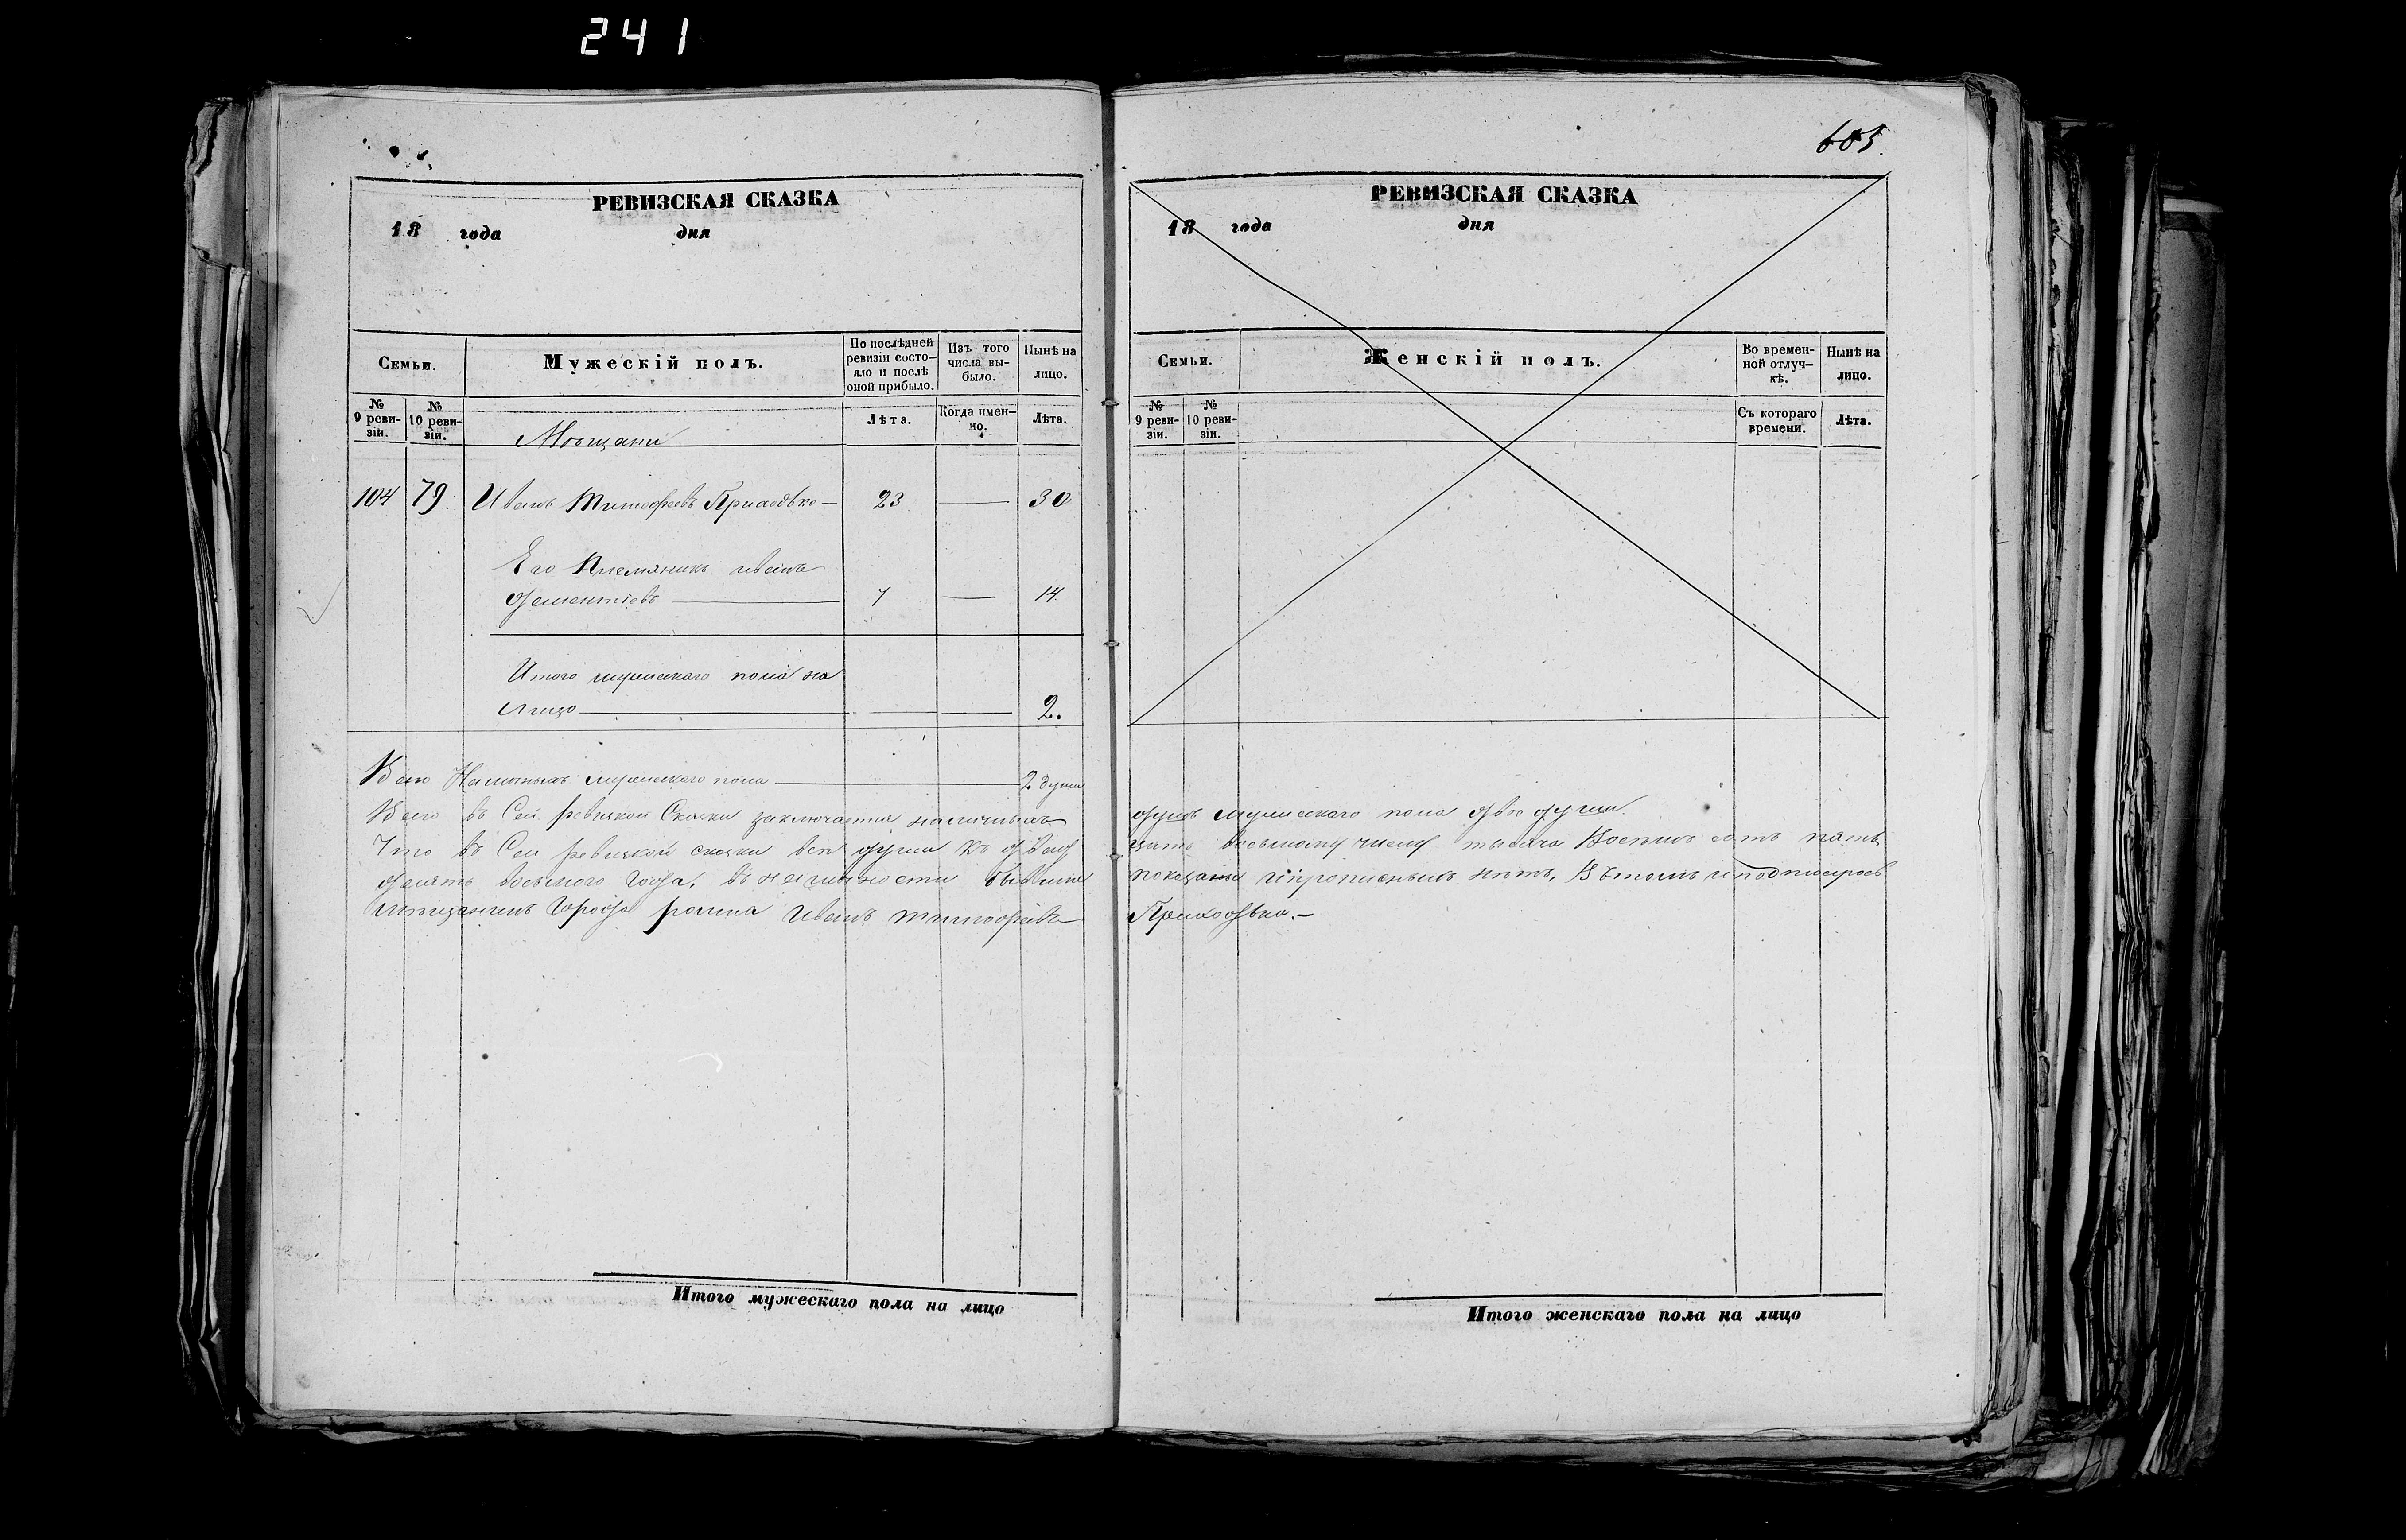 241
РЕВИЗСКАЯ СКАЗКА
18 года дня
Семьи.
Мужескій полъ.
По послѣдней ревизіи состо-
яло и послѣ оной прибыло.
Изъ того числа вы-
было.
Нынѣ на лицо.
№ 9 реви-
зіи.
№ 10 реви-
зіи.
Лѣта.
Когда имен-
но.
Лѣта.
Мѣщане
104 79. Иванъ Тимофеевъ 23 — 30
Его Племяникъ иванъ
дементіевъ — 7 — 14
Итого мужескаго пола на
лицо — 2.
Всего Наличныхъ мужескаго пола — 2 души
Всего въ Сей ревизкой Сказки заключается наличныхъ
Что въ Сей ревизкой сказки всѣ души къ двад
девять восьмого Года, въ наличности бывшие
мѣщанинъ Города ромна Иванъ тимофеевъ
Итого мужескаго пола на лицо
605.
РЕВИЗСКАЯ СКАЗКА
18 года дня
Семьи.
Женскій полъ.
Во времен-
ной отлуч-
кѣ.
Нынѣ на лицо.
№ 9 реви-
зіи.
№ 10 реви-
зіи.
Съ котораго времени.
Лѣта.
душъ мужескаго пола две души.
цать восьмому числу тысяча Восемь сотъ пять
показаны ипрописныхъ нѣтъ, Въ томъ иподписуюсь
Приходько.—
Итого женскаго пола на лицо